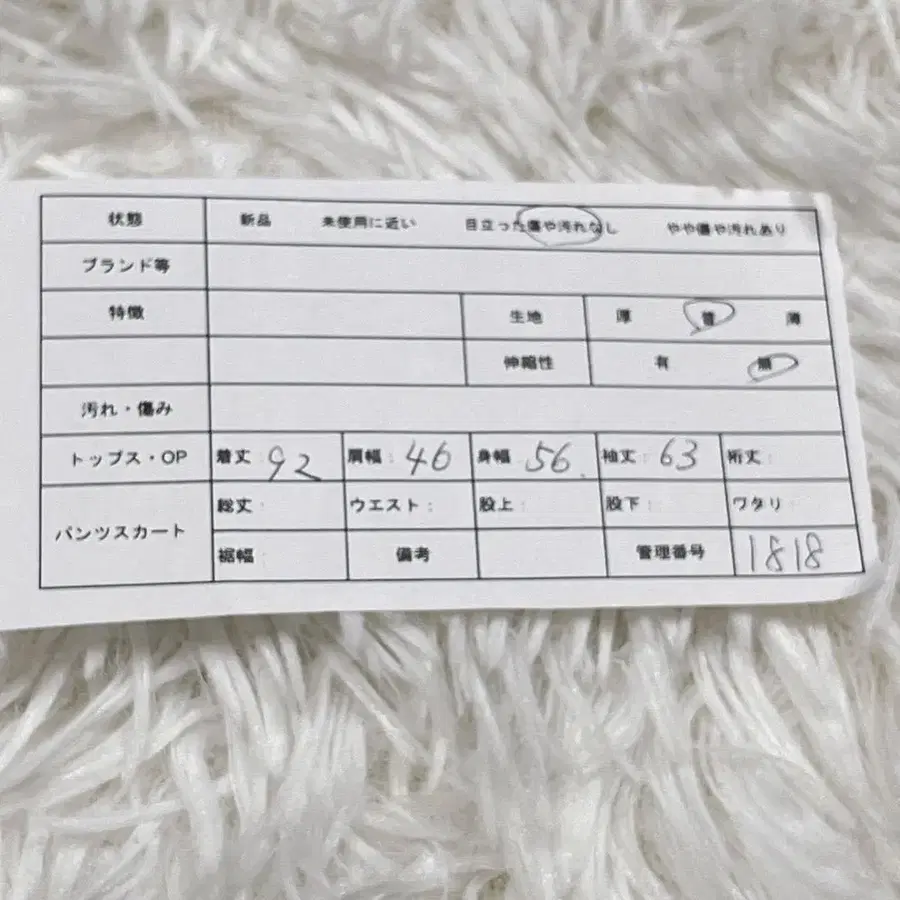 状態 新品 未使用に近い 目立った傷や汚れなし やや傷や汚れあり
ブランド等
特徴 生地 厚 普 薄
伸縮性 有 無
汚れ・傷み
トップス・OP 着丈: 92 肩幅: 46 身幅 56. 袖丈: 63 裄丈:
パンツスカート 総丈: ウエスト: 股上: 股下: ワタリ:
裾幅: 備考 管理番号 1818